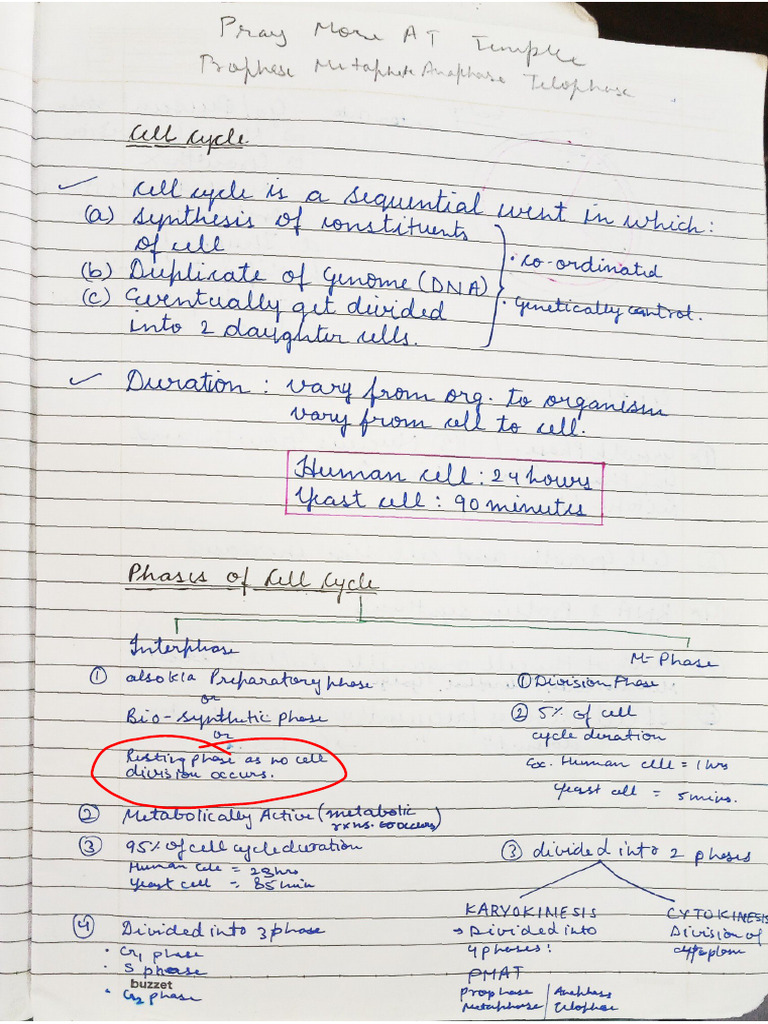 Pray More AT Temple
Prophase Metaphase Anaphase Telophase
Cell Cycle
Cell cycle is a sequential went in which:
(a) Synthesis of constituents
of cell
(b) Duplicate of Genome (DNA)
(c) Eventually get divided
into 2 daughter cells.
• co-ordinated
• Genetically control.
Duration : vary from org. to organism
vary from cell to cell.
Human cell : 24 hours
Yeast cell : 90 minutes
Phases of Cell Cycle
Interphase
① also k/a Preparatory phase
or
Bio-synthetic phase
or
Resting phase as no cell
division occurs.
② Metabolically Active (metabolic
rxns. occurs)
③ 95% of cell cycle duration
Human cell = 23 hrs
Yeast cell = 85 min
④ Divided into 3 phase
• G1 phase
• S phase
buzzet
• G2 phase
M-Phase
① Division Phase
② 5% of cell
cycle duration
Ex. Human cell = 1 hrs
Yeast cell = 5 mins.
③ divided into 2 phases
KARYOKINESIS
→ Divided into
4 phases:
PMAT
Prophase | Anaphase
Metaphase | Telophase
CYTOKINESIS
Division of
cytoplasm